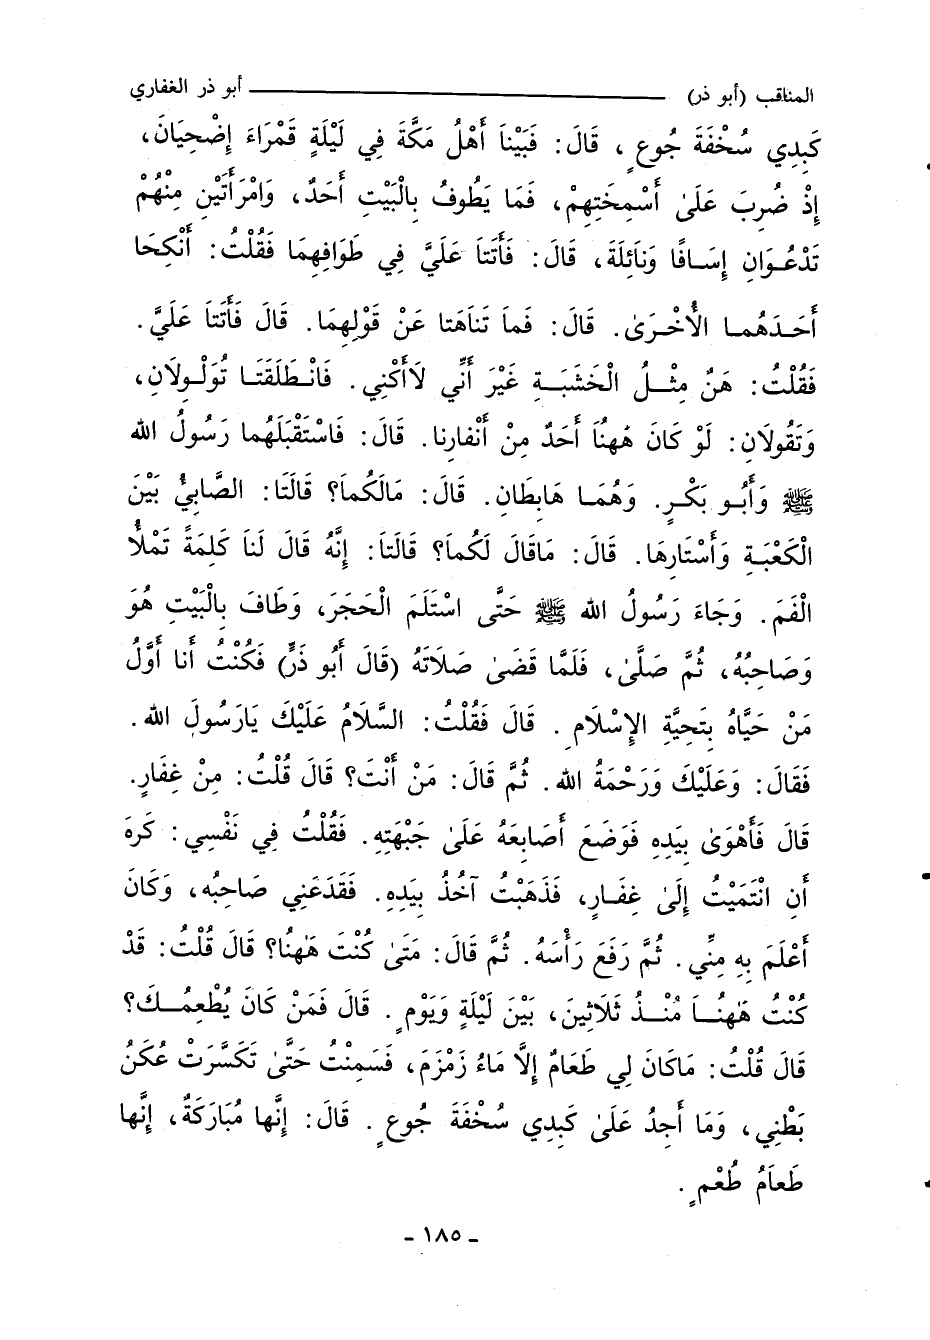 المناقب (أبو ذر) أبو ذر الغفاري
كَبِدِي سُخْفَةَ جُوعٍ ، قَالَ: فَبَيْنَا أَهْلُ مَكَّةَ فِي لَيْلَةٍ قَمْرَاءَ إِضْحِيَان،
إِذْ ضُرِبَ عَلَىٰ أَسْمِخَتِهِمْ، فَمَا يَطُوفُ بِالْبَيْتِ أَحَدٌ، وَامْرَأَتَيْنِ مِنْهُمْ
تَدْعُوَانِ إِسَافًا وَنَائِلَةَ، قَالَ: فَأَتَتَا عَلَيَّ فِي طَوَافِهِمَا فَقُلْتُ: أَنْكِحَا
أَحَدَهُمَا الْأُخْرَىٰ. قَالَ: فَمَا تَنَاهَتا عَنْ قَوْلِهِمَا. قَالَ فَأَتَتَا عَلَيَّ.
فَقُلْتُ: هَنٌ مِثْلُ الْخَشَبَةِ غَيْرَ أَنِّي لَاأَكْنِي. فَانْطَلَقَتَا تُوَلْوِلَانِ،
وَتَقُولَانِ: لَوْ كَانَ هٰهُنَا أَحَدٌ مِنْ أَنْفارِنا. قَالَ: فَاسْتَقْبَلَهُما رَسُولُ الله
ﷺ وَأَبُو بَكْرٍ. وَهُمَا هَابِطَانِ. قَالَ: مَالَكُمَا؟ قَالَتَا: الصَّابِئُ بَيْنَ
الْكَعْبَةِ وَأَسْتَارِهَا. قَالَ: مَاقَالَ لَكُمَا؟ قَالَتَا: إِنَّهُ قَالَ لَنَا كَلِمَةً تَمْلأُ
الْفَمَ. وَجَاءَ رَسُولُ الله ﷺ حَتَّى اسْتَلَمَ الْحَجَرَ، وَطَافَ بِالْبَيْتِ هُوَ
وَصَاحِبُهُ، ثُمَّ صَلَّىٰ، فَلَمَّا قَضَىٰ صَلَاتَهُ (قَالَ أَبُو ذَرٍّ) فَكُنْتُ أَنا أَوَّلُ
مَنْ حَيَّاهُ بِتَحِيَّةِ الإِسْلَامِ . قَالَ فَقُلْتُ: السَّلَامُ عَلَيْكَ يَارَسُولَ الله.
فَقَالَ: وَعَلَيْكَ وَرَحْمَةُ الله. ثُمَّ قَالَ: مَنْ أَنْتَ؟ قَالَ قُلْتُ: مِنْ غِفَارٍ.
قَالَ فَأَهْوَىٰ بِيَدِهِ فَوَضَعَ أَصَابِعَهُ عَلَىٰ جَبْهَتِهِ. فَقُلْتُ فِي نَفْسِي: كَرِهَ
أَنِ انْتَمَيْتُ إِلَىٰ غِفَارٍ، فَذَهَبْتُ آخُذُ بِيَدِهِ. فَقَدَعَنِي صَاحِبُه، وَكَانَ
أَعْلَمَ بِهِ مِنِّي. ثُمَّ رَفَعَ رَأْسَهُ. ثُمَّ قَالَ: مَتَىٰ كُنْتَ هٰهُنَا؟ قَالَ قُلْتُ: قَدْ
كُنْتُ هٰهُنَا مُنْذُ ثَلَاثِينَ، بَيْنَ لَيْلَةٍ وَيَوْمٍ. قَالَ فَمَنْ كَانَ يُطْعِمُكَ؟
قَالَ قُلْتُ: مَاكَانَ لِي طَعَامٌ إِلَّا مَاءُ زَمْزَمَ، فَسَمِنْتُ حَتَّىٰ تَكَسَّرَتْ عُكَنُ
بَطْنِي، وَمَا أَجِدُ عَلَىٰ كَبِدِي سُخْفَةَ جُوعٍ. قَالَ: إِنَّها مُبَارَكَةٌ، إِنَّها
طَعَامُ طُعْمٍ.
- ١٨٥ -